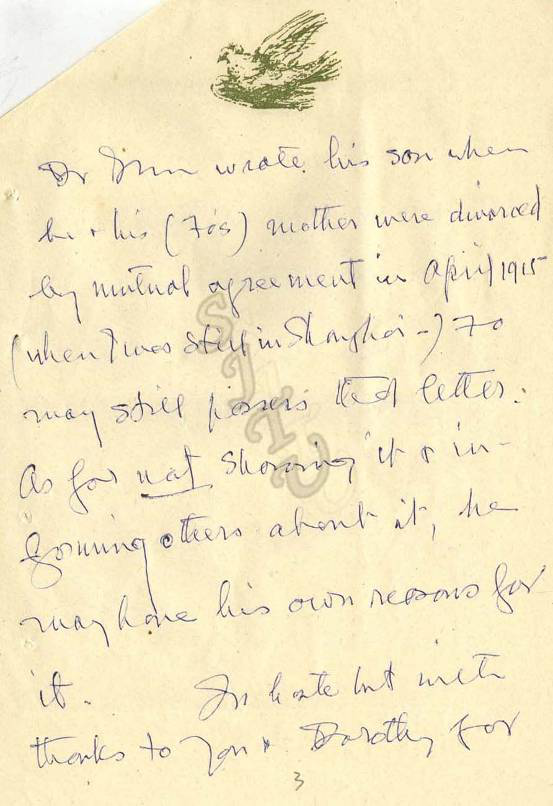 Dr Sun wrote his son when
he & his (Fo's) mother were divorced
by mutual agreement in April 1915
(when I was still in Shanghai -) Fo
may still possess that letter.
As for not showing it & in-
forming others about it, he
may have his own reasons for
it. In haste but with
thanks to you & Dorothy for
3